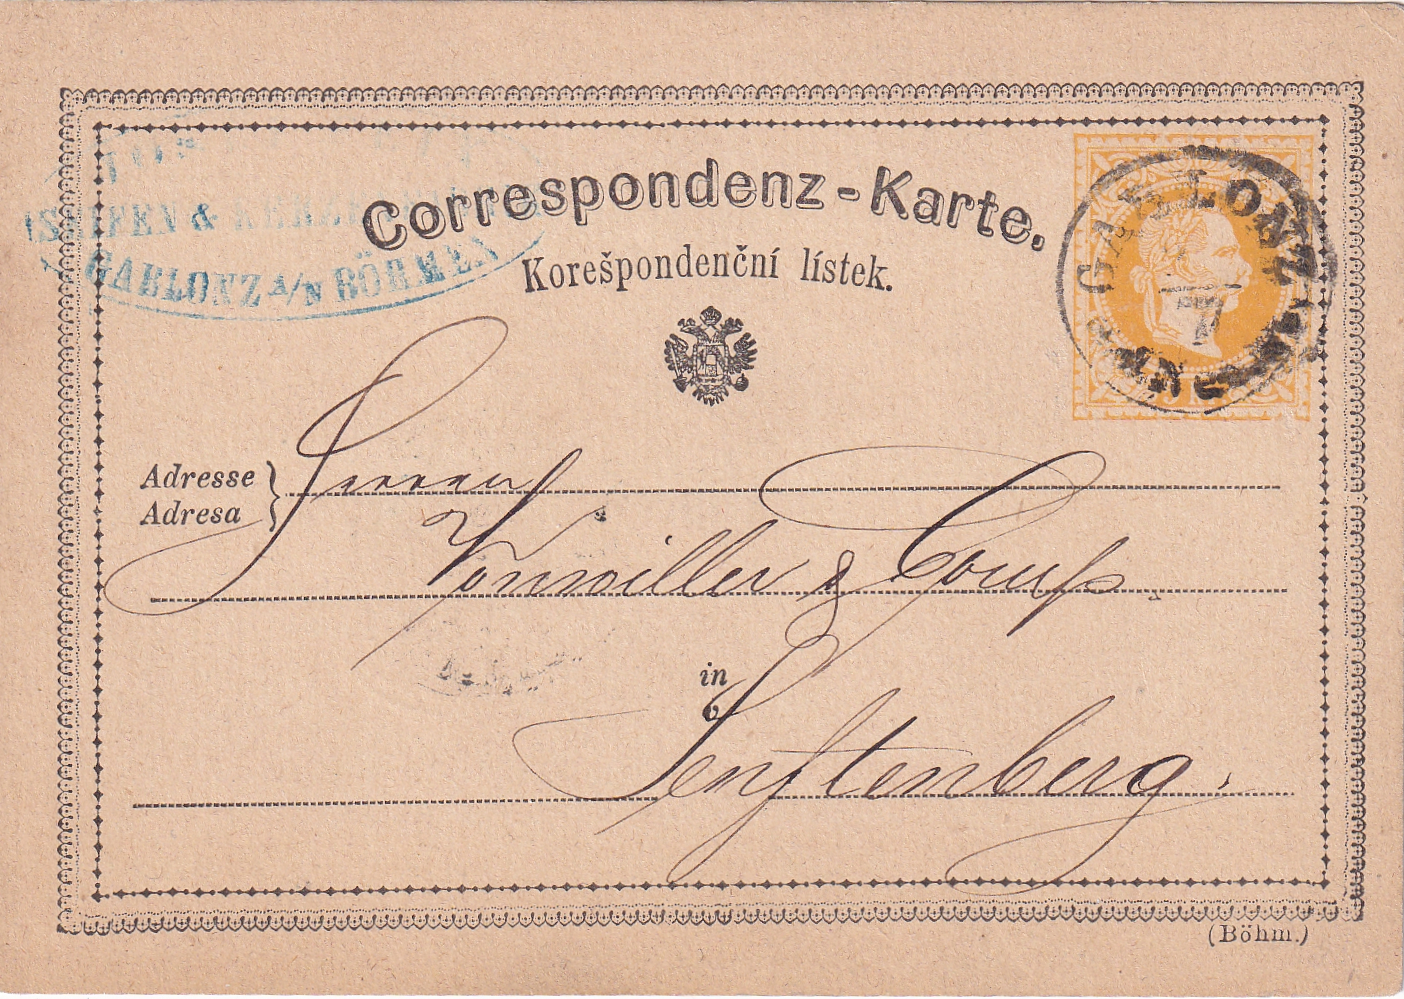 Correspondenz-Karte.
Korešpondenční lístek.
& 
GABLONZ A/N BÖHMEN
GABLONZ
7
Adresse
Adresa
Herren
Vonwiller & Comp
in
v
Senftenberg.
(Böhm.)